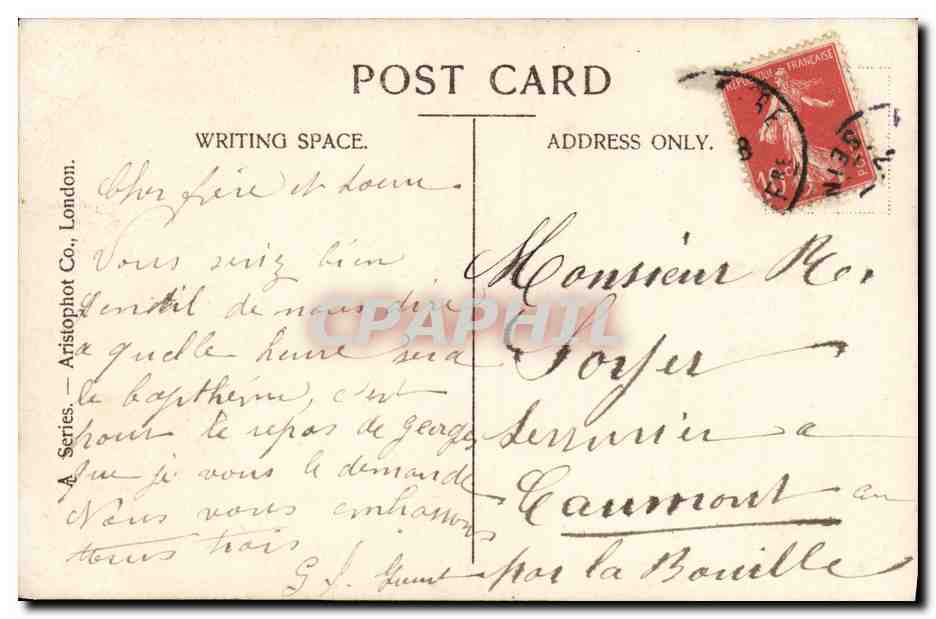 POST CARD
WRITING SPACE.
ADDRESS ONLY.
A Series. — Aristophot Co., London.
RÉPUBLIQUE FRANÇAISE
10
POSTES
8
SEIN
Cher frère et soeur
Vous seriez bien
gentil de nous dire
a quelle heure sera
le bapthême, c'est
pour le repos de georges
que je vous le demande
Nous vous embrassons
tous trois
G J
Monsieur R.
Soyer
Serrurier a
Caumont
par la Bouille
CPAPHIL